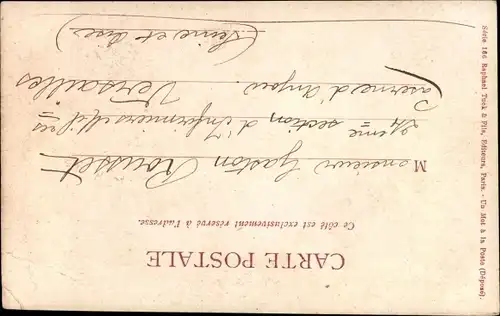 CARTE POSTALE
Ce côté est exclusivement réservé à l'adresse.
Monsieur Gaston Rousset
24eme section d'Infirmiers Mil res
Caserne d'Anjou.
Versailles
(Seine et Oise)
Série 166 Raphael Tuck & Fils, Editeurs, Paris. - Un Mot à la Poste (Déposé).